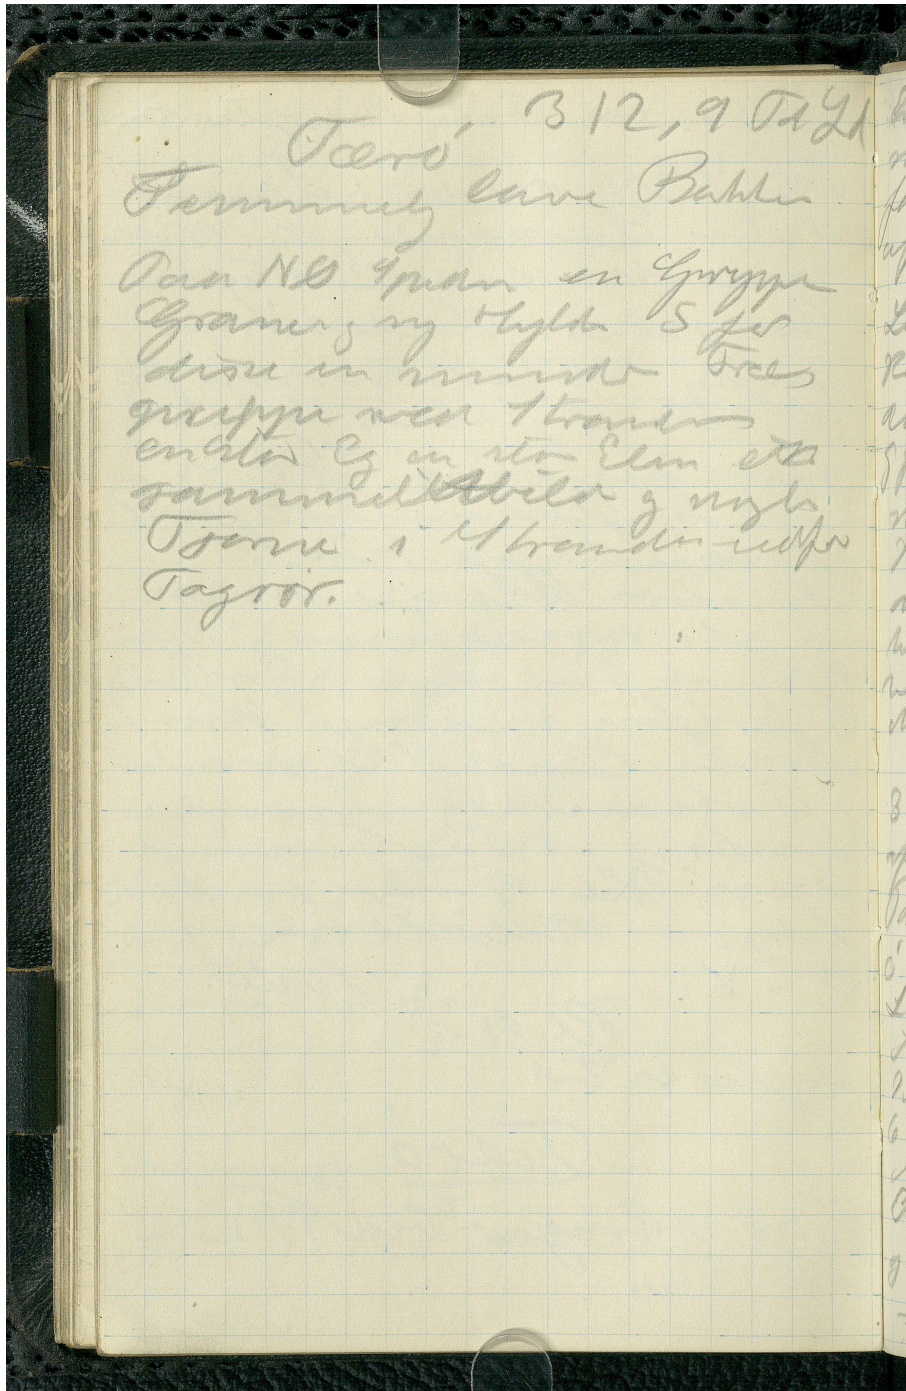 312, 9 Td Ld
Tærø
Temmelig lave Bakker
Paa NØ Spidsen en Gruppe
Graner og ny Hylde S for
disse en mindre Træ
gruppe ved Stranden
en stor Eg en stor Elm et
gammelt Abild og nogle
Tjørne i Stranden udfor
Tagrør.